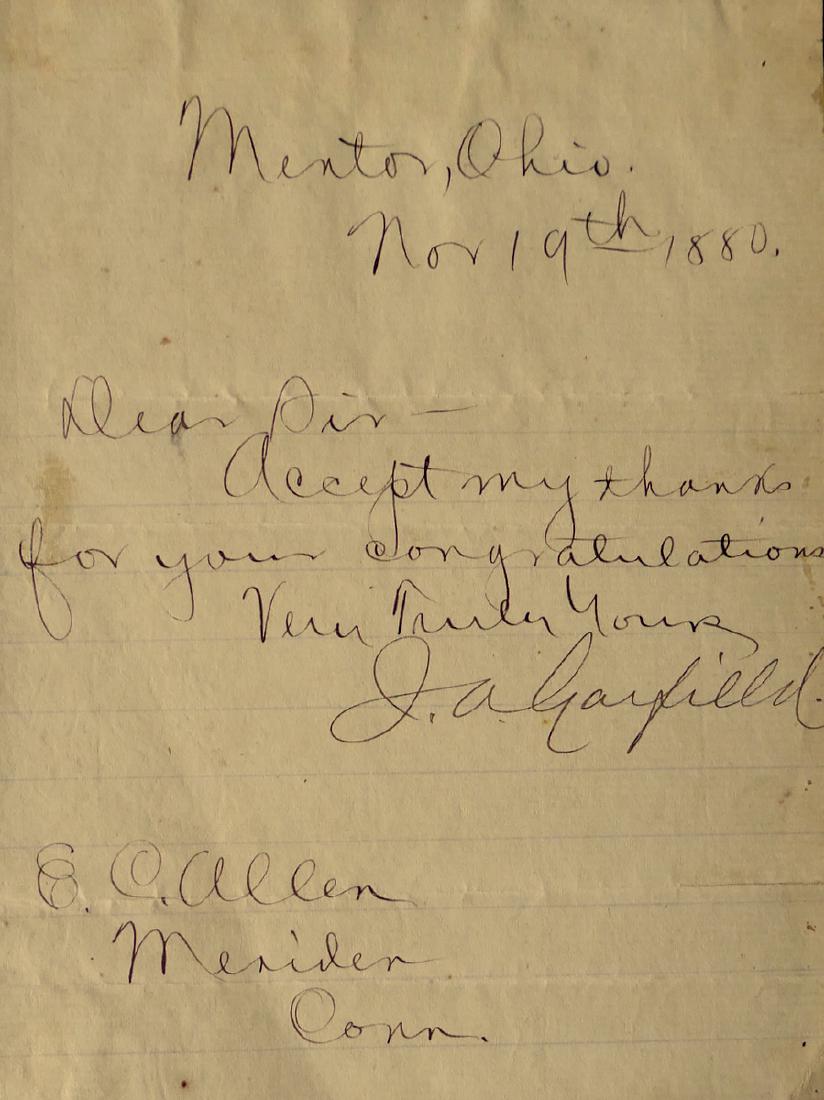 Mentor, Ohio.
Nov 19th, 1880.
Dear Sir —
Accept my thanks
for your congratulations
Very Truly Yours
J. A. Garfield.
E. C. Allen
Meriden
Conn.